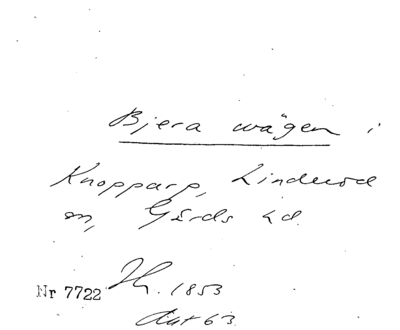 Bjera wägen i
Knopparp, Linderöd
sn, Gärds hd.
Nr 7722 1853
63